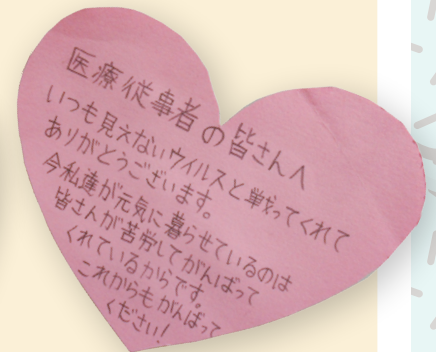 医療従事者の皆さんへ
いつも見えないウイルスと戦ってくれて
ありがとうございます。
今私達が元気に暮らせているのは
皆さんが苦労してがんばって
くれているからです。
これからもがんばって
ください!